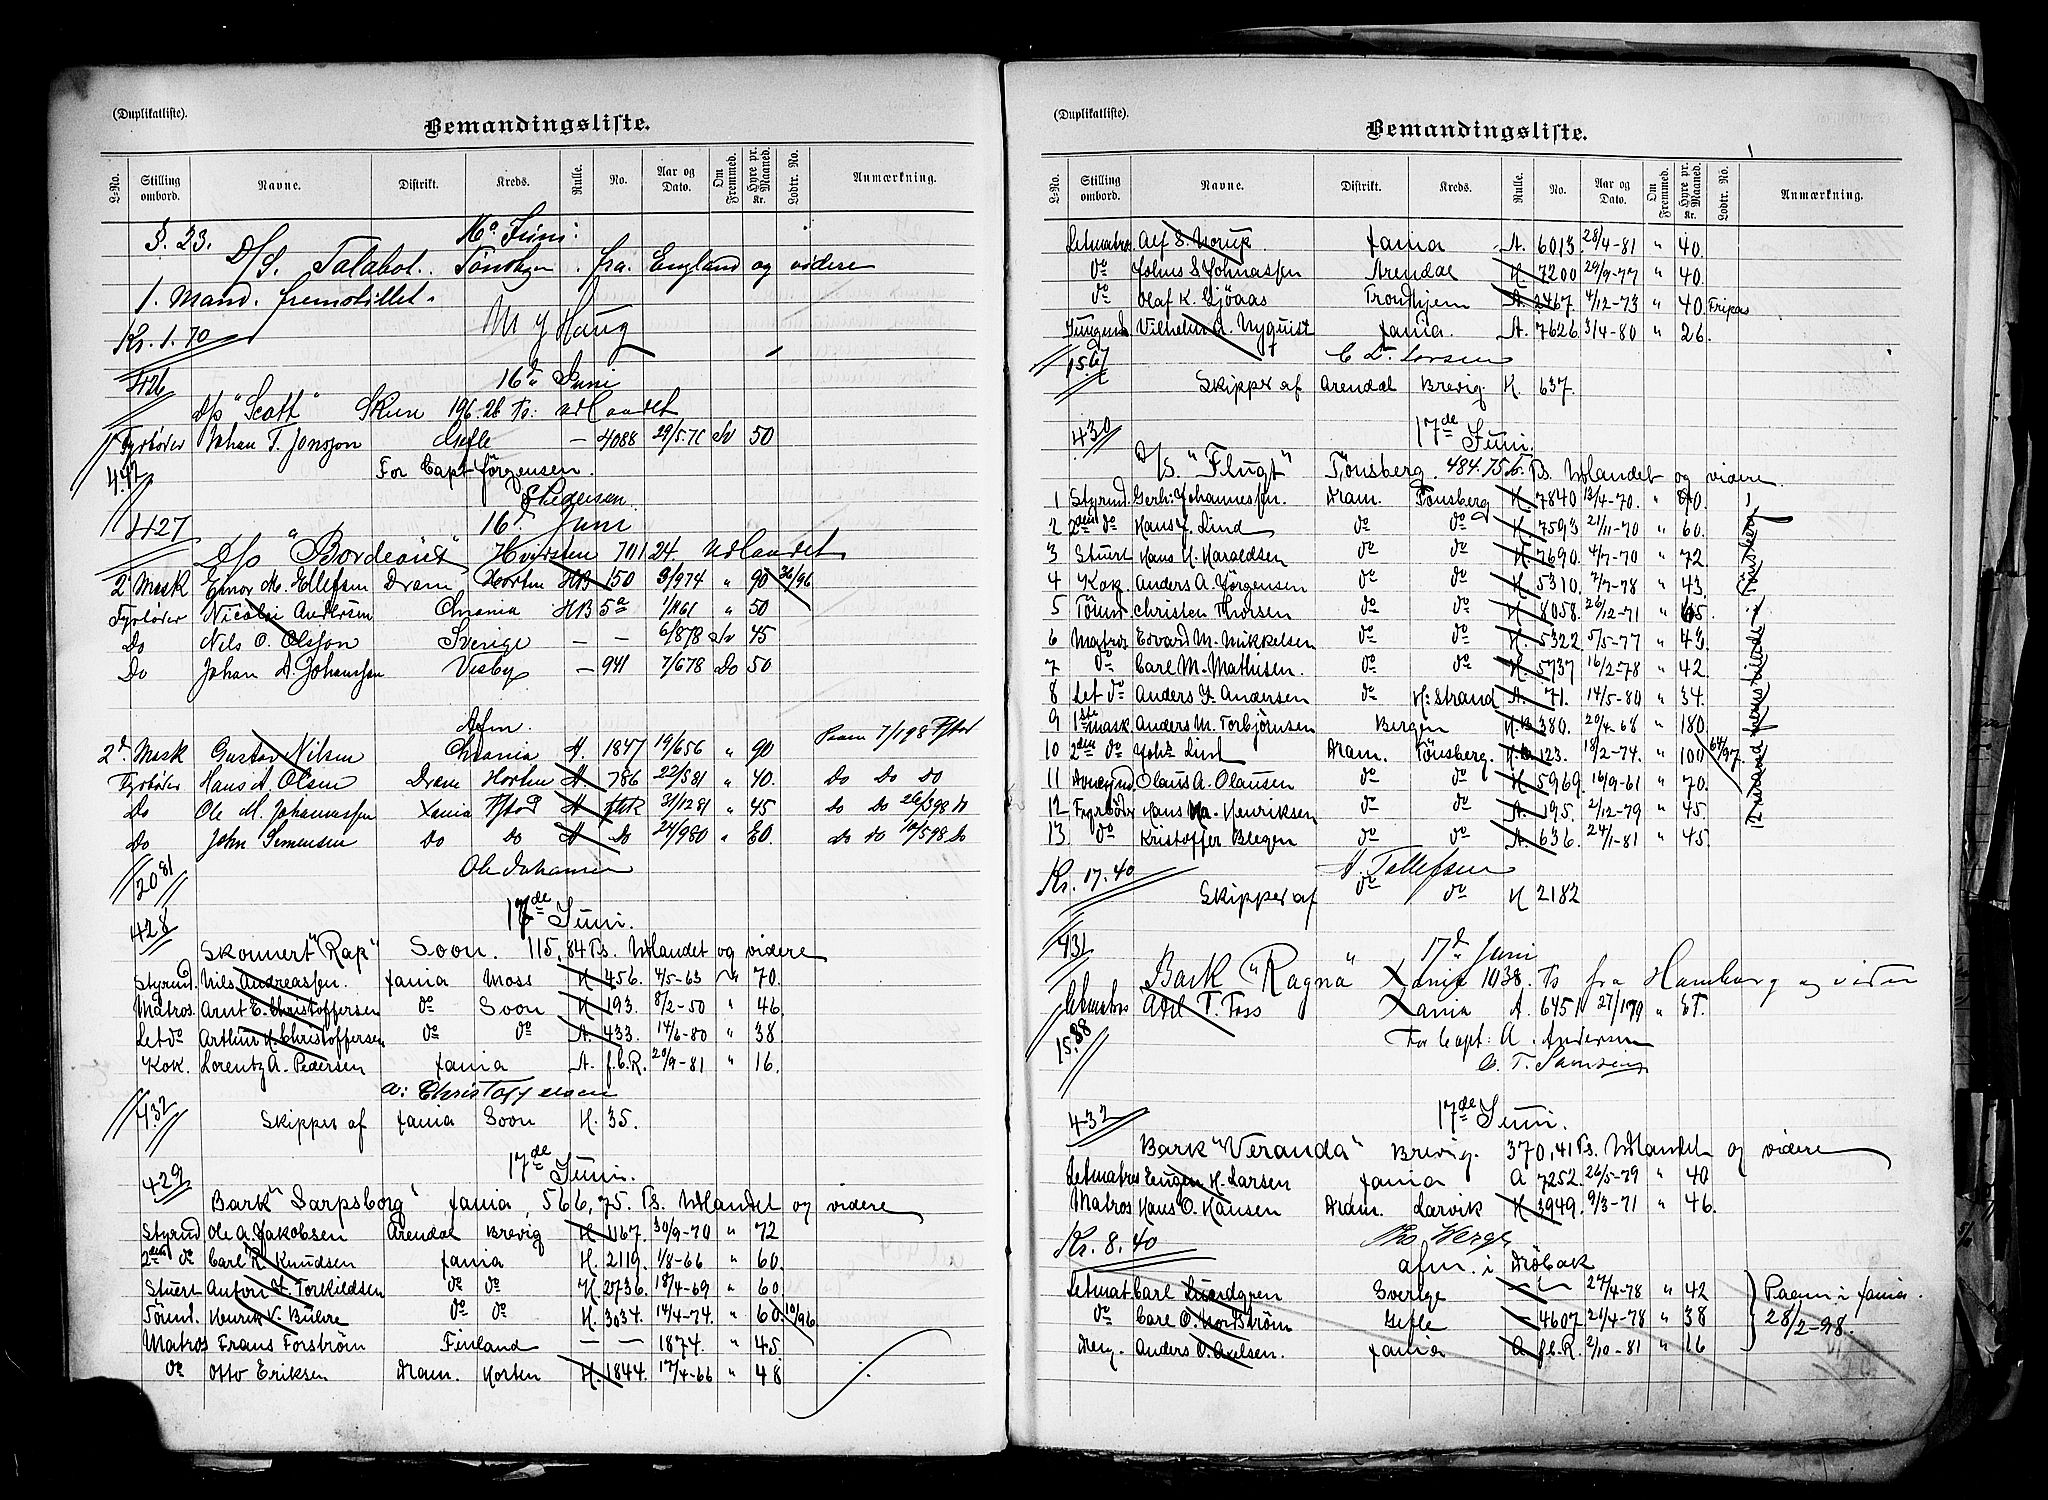 (Duplikatliste).
Bemandingsliste.
L-No. Stilling ombord. Navne. Distrikt. Kreds. Rulle. No. Aar og Dato. Om Fremmed. Hyre pr. Maaned. Kr. Lodtr. No. Anmærkning.
§. 23. Juni:
D/S. Talabot. Tönsbgr. fra England og videre
1. Mand. fremstillet.
Kr. 1.70 M J Haug
426 16d Juni
D/s "Scott" Skien 196.26 Ts: udlandet
Fyrböder Johan T. Jonsson Gefle — 4088 29/5.71 do 50
4.42 For Capt Jörgensen.
S Pedersen
427 16d Juni
D/s "Bordeaux" Hvidsten 701 24 Udlandet
2 Mask Einar M. Ellefsen Dram Horten HB 150 3/974 " 90 36/96
Fyrböder Nicolai Andersen Chrania HB 5a 1/161 " 50
Do Nils O. Olsson Sverige — — 6/878 do 45
Do Johan A. Johansson Visby — 941 7/678 Do 50
Afm.
2d Mask Gustav Nilsen Chrania A. 1847 19/656 " 90 Paam 7/198 Fstad
Fyrböder Hans A. Olsen Dram Horten A. 786 22/581 " 40. Do Do Do
Do Ole M. Johannessen Xania Fstad A fbR 31/1281 " 45 Do Do 26/398 Do
Do John Simensen Do Do A Do 24/980 " 60. Do Do 10/598 Do
2081 Ole Johansen
428 17de Juni.
Skonnert "Rap" Soon. 115,84 Ts. Udlandet og videre
Styrmd. Nils Andreassen. fania Moss H 456. 4/5-63 " 70.
Matros. Arnt E. Christoffersen do Soon H. 193. 8/2-50 " 46
Let do Arthur H. Christoffersen do do A. 433. 14/6-80 " 38
Kok. Lorentz A. Pedersen fania A. f.b.R. 20/9-81 " 16.
4.32 A: Christoffersen
Skipper af fania Soon H. 35.
429 17de Juni.
Bark "Sarpsborg" fania, 566,75. Ts. Udlandet og videre
Styrmd Ole A. Jakobsen Arendal Brevig H. 1167. 30/9-70 " 72
2den do Carl R. Knudsen fania H. 2119. 1/8-66 " 60.
Stuert Anton F. Torkildsen do do H 2736. 18/4-69 " 60
Tömmd. Henrik V. Bühre do do H. 3034. 14/4-74. " 60. 10/96
Matros Frans Forström Finland — — 1874. " 45
do Otto Eriksen Dram. Horten H. 1844. 17/4-66 " 48
(Duplikatliste).
Bemandingsliste.
L-No. Stilling ombord. Navne. Distrikt. Kreds. Rulle. No. Aar og Dato. Om Fremmed. Hyre pr. Maaned. Kr. Lodtr. No. Anmærkning.
Letmatros Alf S. Norup fania A. 6013. 28/4-81 " 40.
do Johns S Johnassen Arendal H 7200 29/9-77 " 40.
do Olaf K. Gjöaas Trondhjem A. 2467. 4/12-73 " 40. Fripas
Jungmd Vilhelm A. Nyquist fania. A. 7626 3/4-80 " 26.
1567 C L. Larsen
Skipper af Arendal Brevig H. 637.
430 17de Juni.
D/S. "Flugt" Tönsberg. 484.75 Ts. Udlandet og videre.
1 Styrmd. Gerh: Johannessen. Dram. Tönsberg H 7840 13/4-70. " 90.
2 2den do Hans J. Lind do do H 7593 21/11-70 " 60.
3 Stuert Hans H. Haraldsen do do H. 7690. 4/7-70 " 72
4 Kok. Anders A. Jörgensen do do H 5310. 7/7-78 " 43.
5 Tömr. Christen Thorsen do do H 8058. 26/12-71 " 65.
6 Matros Edvard M. Mikkelsen do do H. 5322 5/5-77 " 43
7 do Carl M. Mathisen do do H. 5737 16/2-78 " 42
8 Let do Anders F. Andersen do H:strand A. 71. 14/5-80 " 34.
9 1ste mask Anders M. Torbjörnsen Bergen H.B. 380. 20/4-68 " 180.
10 2den do Joh: Lind Dram. Tönsberg. H.B. 123. 18/2-74. " 100 64/97.
11 Donkymd Olaus A. Olausen do do H 5969. 16/9-61 " 70.
12 Fyrböder Hans Ma. Henriksen do do A. 195. 2/12-79 " 45.
13. do Kristoffer Blegen do do A. 636. 24/1-81 " 45.
12 mand fremstillede i Tönsberg
Kr. 17.40 A. Tollefsen
Skipper af do do H 2182
431 17d Juni
Bark "Ragna" Xania 1038. Ts fra Hamburg og videre
Letmatros Axel T. Foss Xania A. 6451 27/179 "
1588 For Capt: A. Andersen
C. T. Samsing
432 17de Juni.
Bark "Veranda" Brevig. 370,41 Ts. Udlandet og videre
Letmatros Eugen H. Larsen fania A 7252. 26/5-79 " 40
Matros Hans O. Hansen Dram. Larvik H 3949. 9/3-71 " 46.
Kr. 8.40
afm. i Dröbak
Letmat. Carl Lundgren Sverige — — 27/4-78 " 42
do Carl O. Nordström Gefle — 4607 21/4-78 " 38
Anders O. Axelsen. fania A f.b.R. 2/10-81 " 16
Paam. i fania. 28/2-98.